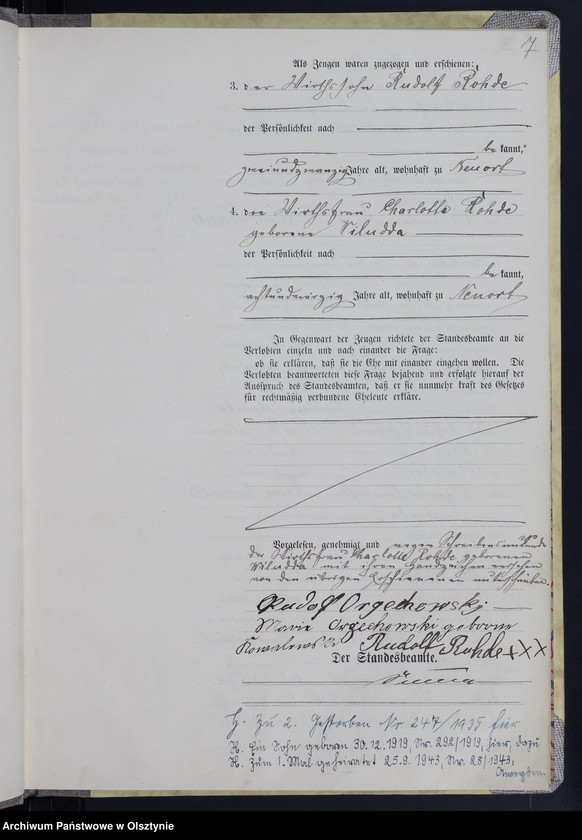 7
Als Zeugen waren zugezogen und erschienen:
3. der Wirthssohn Rudolf Rohde
der Persönlichkeit nach
be kannt,
zweiundzwanzig Jahre alt, wohnhaft zu Neuort
4. die Wirthsfrau Charlotte Rohde
geborene Viludda
der Persönlichkeit nach
be kannt,
achtundvierzig Jahre alt, wohnhaft zu Neuort
In Gegenwart der Zeugen richtete der Standesbeamte an die
Verlobten einzeln und nach einander die Frage:
ob sie erklären, daß sie die Ehe mit einander eingehen wollen. Die
Verlobten beantworteten diese Frage bejahend und erfolgte hierauf der
Ausspruch des Standesbeamten, daß er sie nunmehr kraft des Gesetzes
für rechtmäßig verbundene Eheleute erkläre.
Vorgelesen, genehmigt und wegen Schreibensunkunde
der Wirthsfrau Charlotte Rohde geborenen
Viludda mit ihren Handzeichen versehen
von den übrigen Erschienenen unterschrieben.
Rudolf Orzechowski
Marie Orzechowski geborne
Kowalewski Rudolf Rohde XXX
Der Standesbeamte.
H. Zu 2. Gestorben Nr. 247/1935 hier
H. Ein Sohn geboren 30.12.1919, Nr. 292/1919, hier, dazu
H. Zum 1. Mal geheiratet 25.9.1943, Nr. 28/1943,
Archiwum Państwowe w Olsztynie